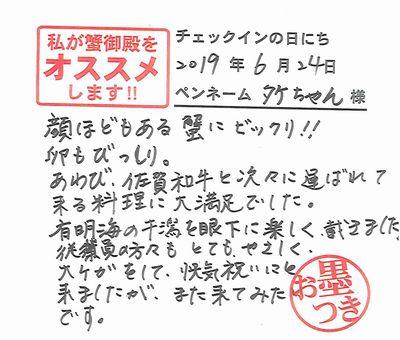 私が蟹御殿を
オススメ
します!!
チェックインの日にち
2019年6月24日
ペンネーム タケちゃん 様
顔ほどもある蟹にビックリ!!
卵もびっしり。
あわび、佐賀和牛と次々に運ばれて
来る料理に大満足でした。
有明海の干潟を眼下に楽しく戴きました
従業員の方々もとてもやさしく、
大ケガをして、快気祝いにと
来ましたが、また来てみた
です。
お墨
つき